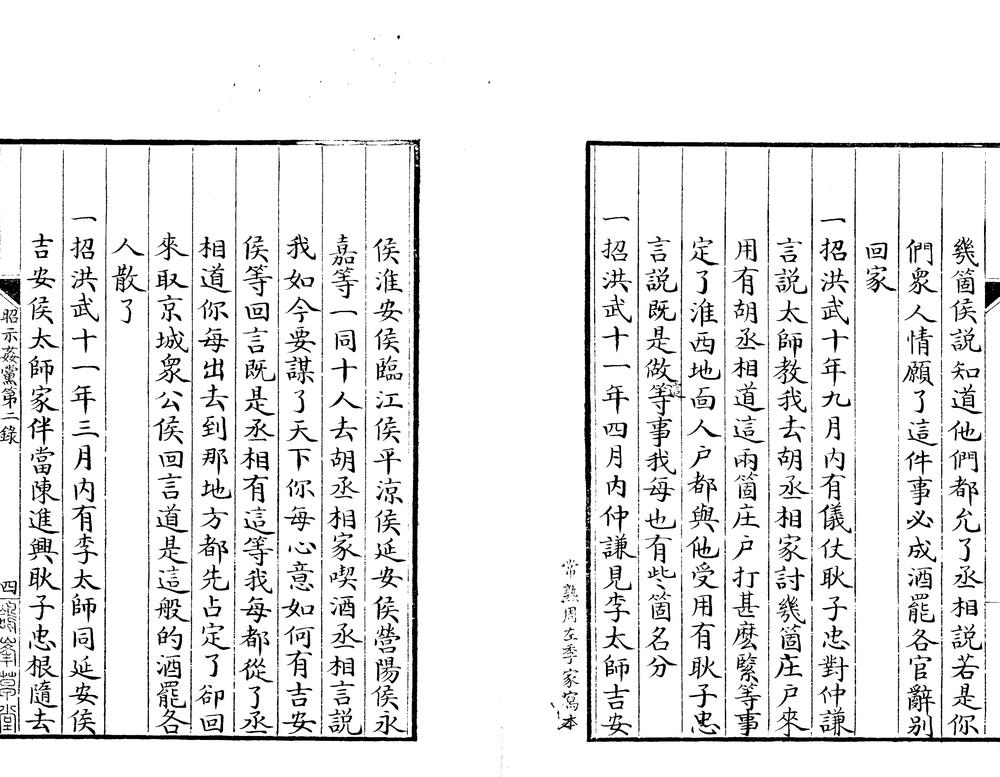 幾箇侯說知道他們都允了丞相說若是你
們衆人情願了這件事必成酒罷各官辭别
回家
一招洪武十年九月内有儀仗耿子忠對仲謙
言說太師教我去胡丞相家討幾箇庄戶來
用有胡丞相道這兩箇庄戶打甚麽緊等事
定了淮西地面人戶都與他受用有耿子忠
言說既是做這等事我每也有些箇名分
一招洪武十一年四月内仲謙見李太師吉安
常熟周左季家寫本
侯淮安侯臨江侯平涼侯延安侯營陽侯永
嘉等一同十人去胡丞相家喫酒丞相言說
我如今要謀了天下你每心意如何有吉安
侯等回言既是丞相有這等我每都從了丞
相道你每出去到那地方都先占定了卻回
來取京城衆公侯回言道是這般的酒罷各
人散了
一招洪武十一年三月内有李太師同延安侯
吉安侯太師家伴當陳進興耿子忠根隨去
昭示姦黨第二錄
四